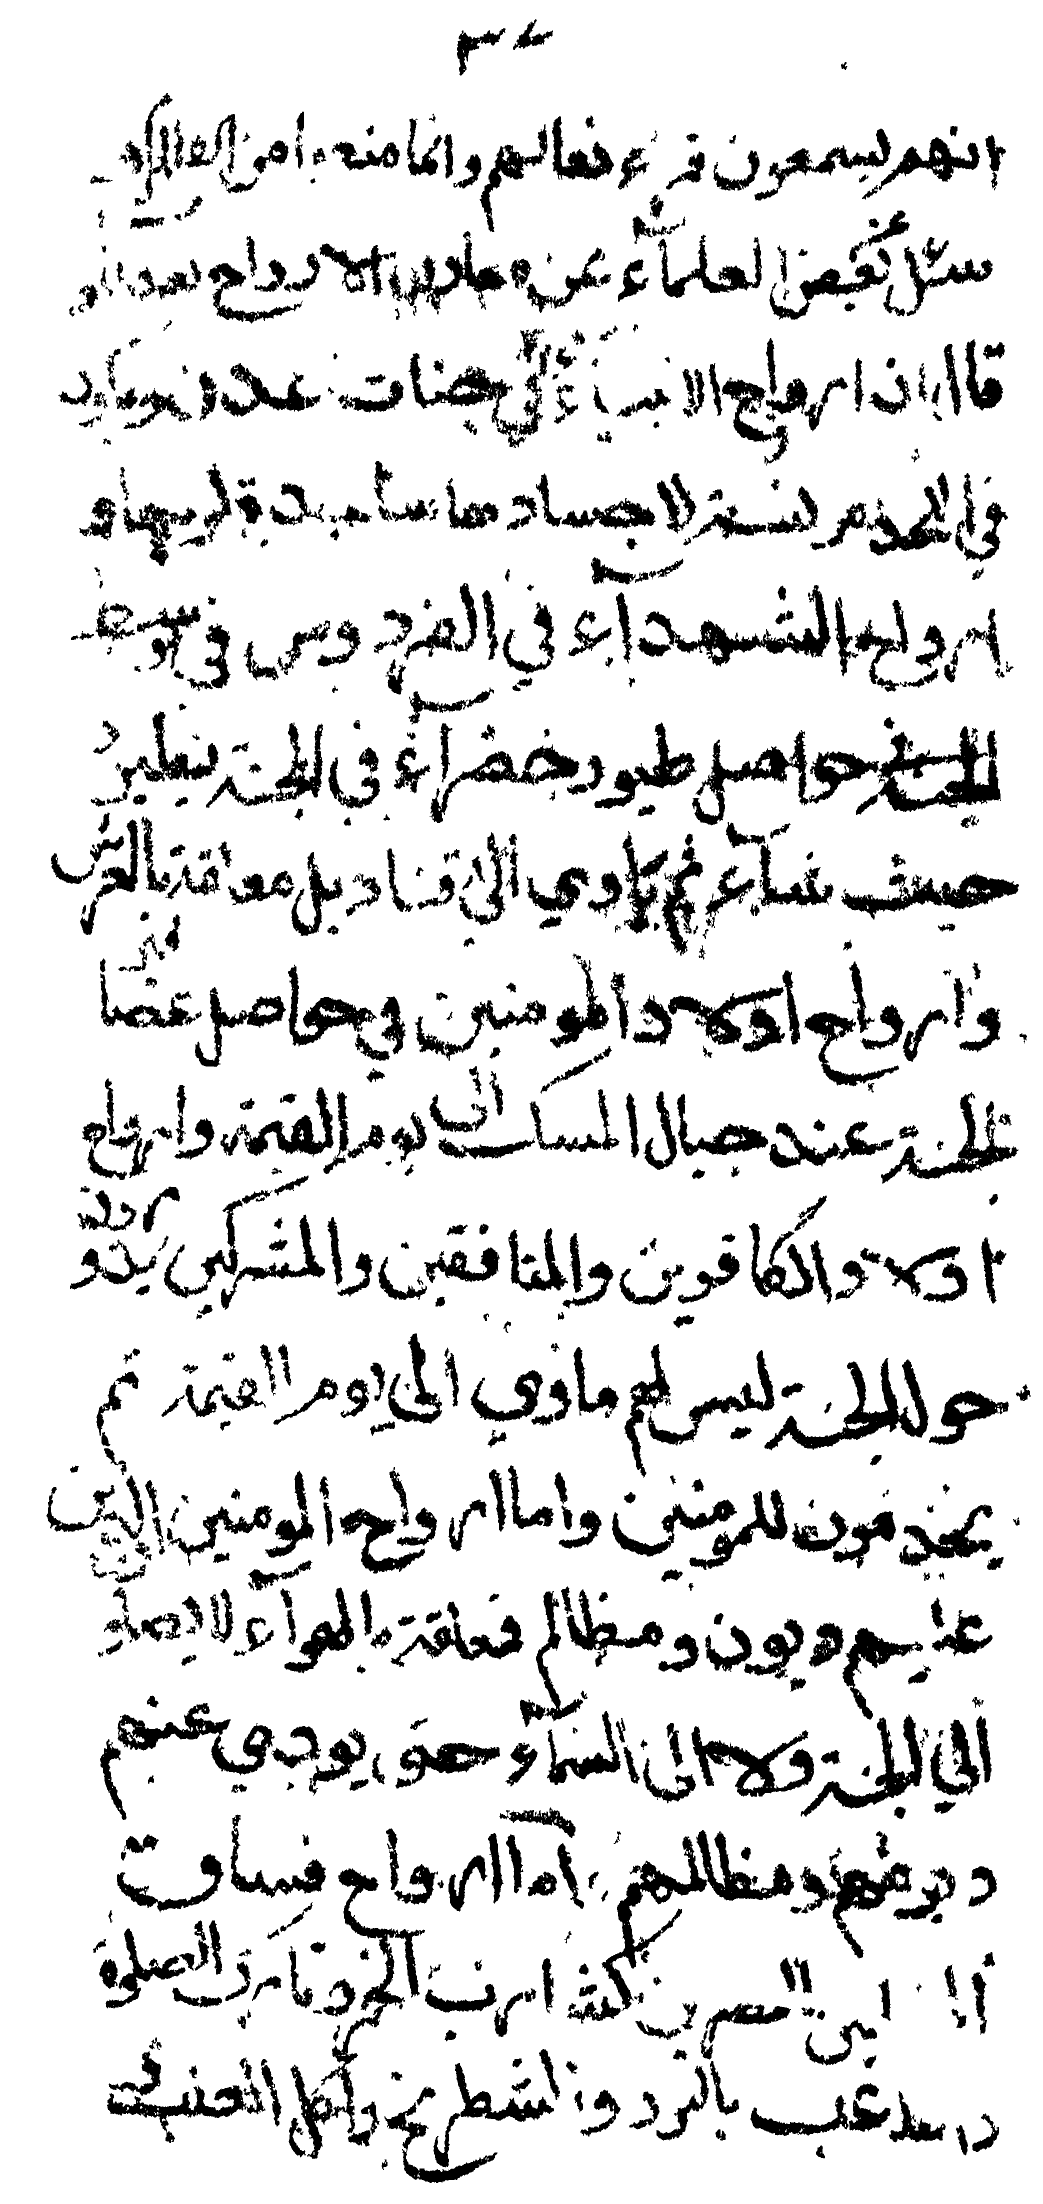 ٣٧
انهم يسمعون قرع نعالهم وانما منعوا من
سئل بعض العلماء عن الارواح بعد
قال ان ارواح الانبياء في جنات عدن
في اللحد مونسة لاجسادها ساجدة لربها و
ارواح الشهداء في الفردوس في وسط
الجنة في حواصل طيور خضراء في الجنة تطير
حيث شاء ثم تاوي الى قناديل معلقة بالعرش
وارواح اولاد المومنين في حواصل عصا فير
الجنة عند جبال المسك الى يوم القيمة وارواح
اولاد الكافرين والمنافقين والمشركين يدورون
حول الجنة ليس لهم ماوي الى يوم القيمة ثم
يخدمون للمومنين واما ارواح المومنين الذين
عليهم ديون ومظالم فمعلقة بالهواء لا يصلون
الي الجنة ولا الى السماء حتى يودي عنهم
ديونهم ومظالمهم اما ارواح فساق
المصرين كشارب الخمر وتارك الصلوة
بالنرد والشطرنج واكل